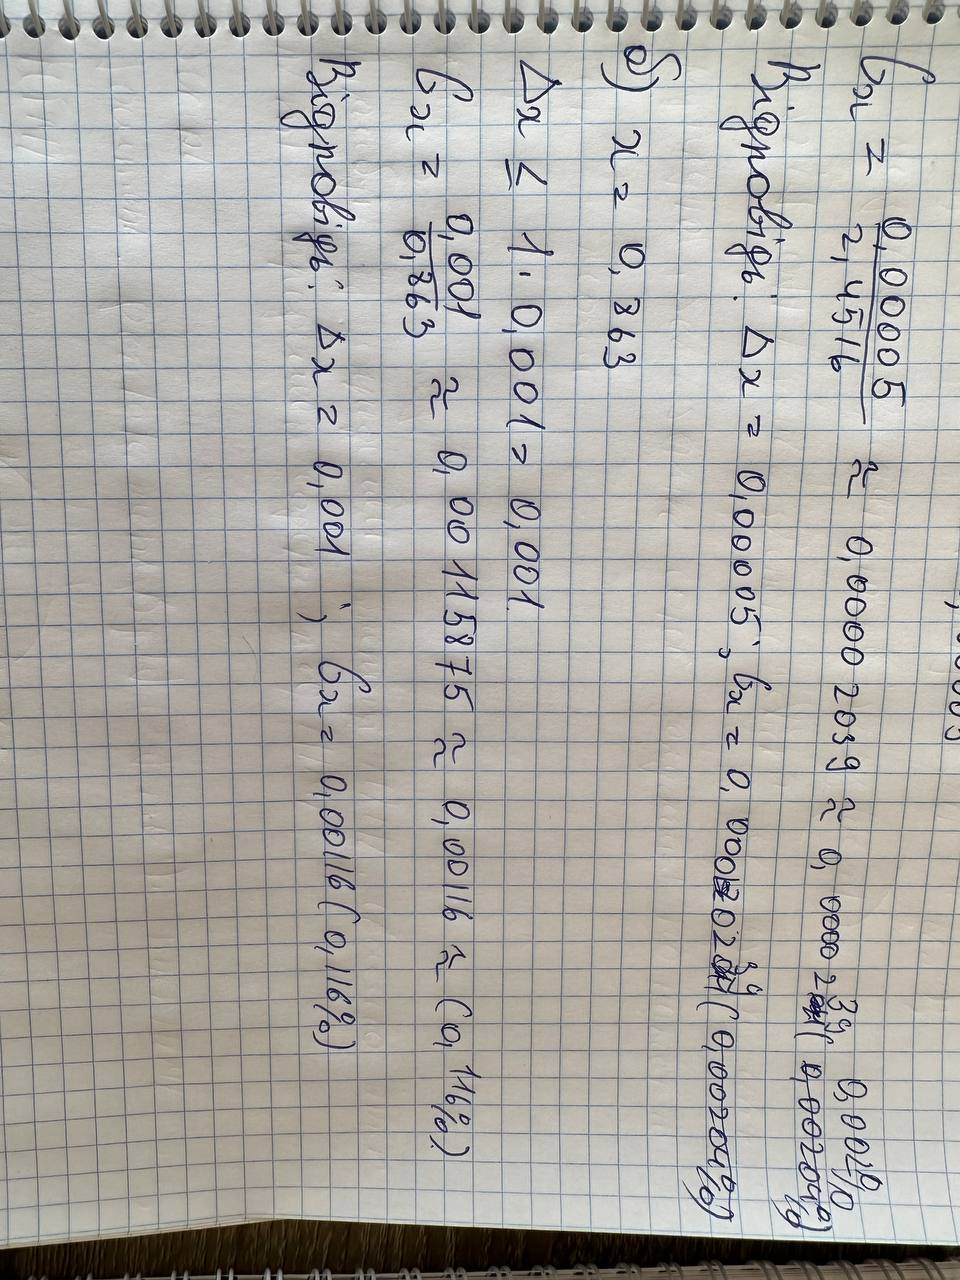 δx = 0,00005 / 2,4516 ≈ 0,00002039 ≈ 0,0000239 ( 0,00204%) 0,001%
Відповідь: Δx = 0,00005; δx = 0, ( 0,00204%)
б) x = 0,863
Δx ≤ 1 · 0,001 = 0,001.
δx = 0,001 / 0,863 ≈ 0,00115875 ≈ 0,00116 ≈ (0,116%)
Відповідь: Δx = 0,001 ; δx = 0,00116 (0,116%)